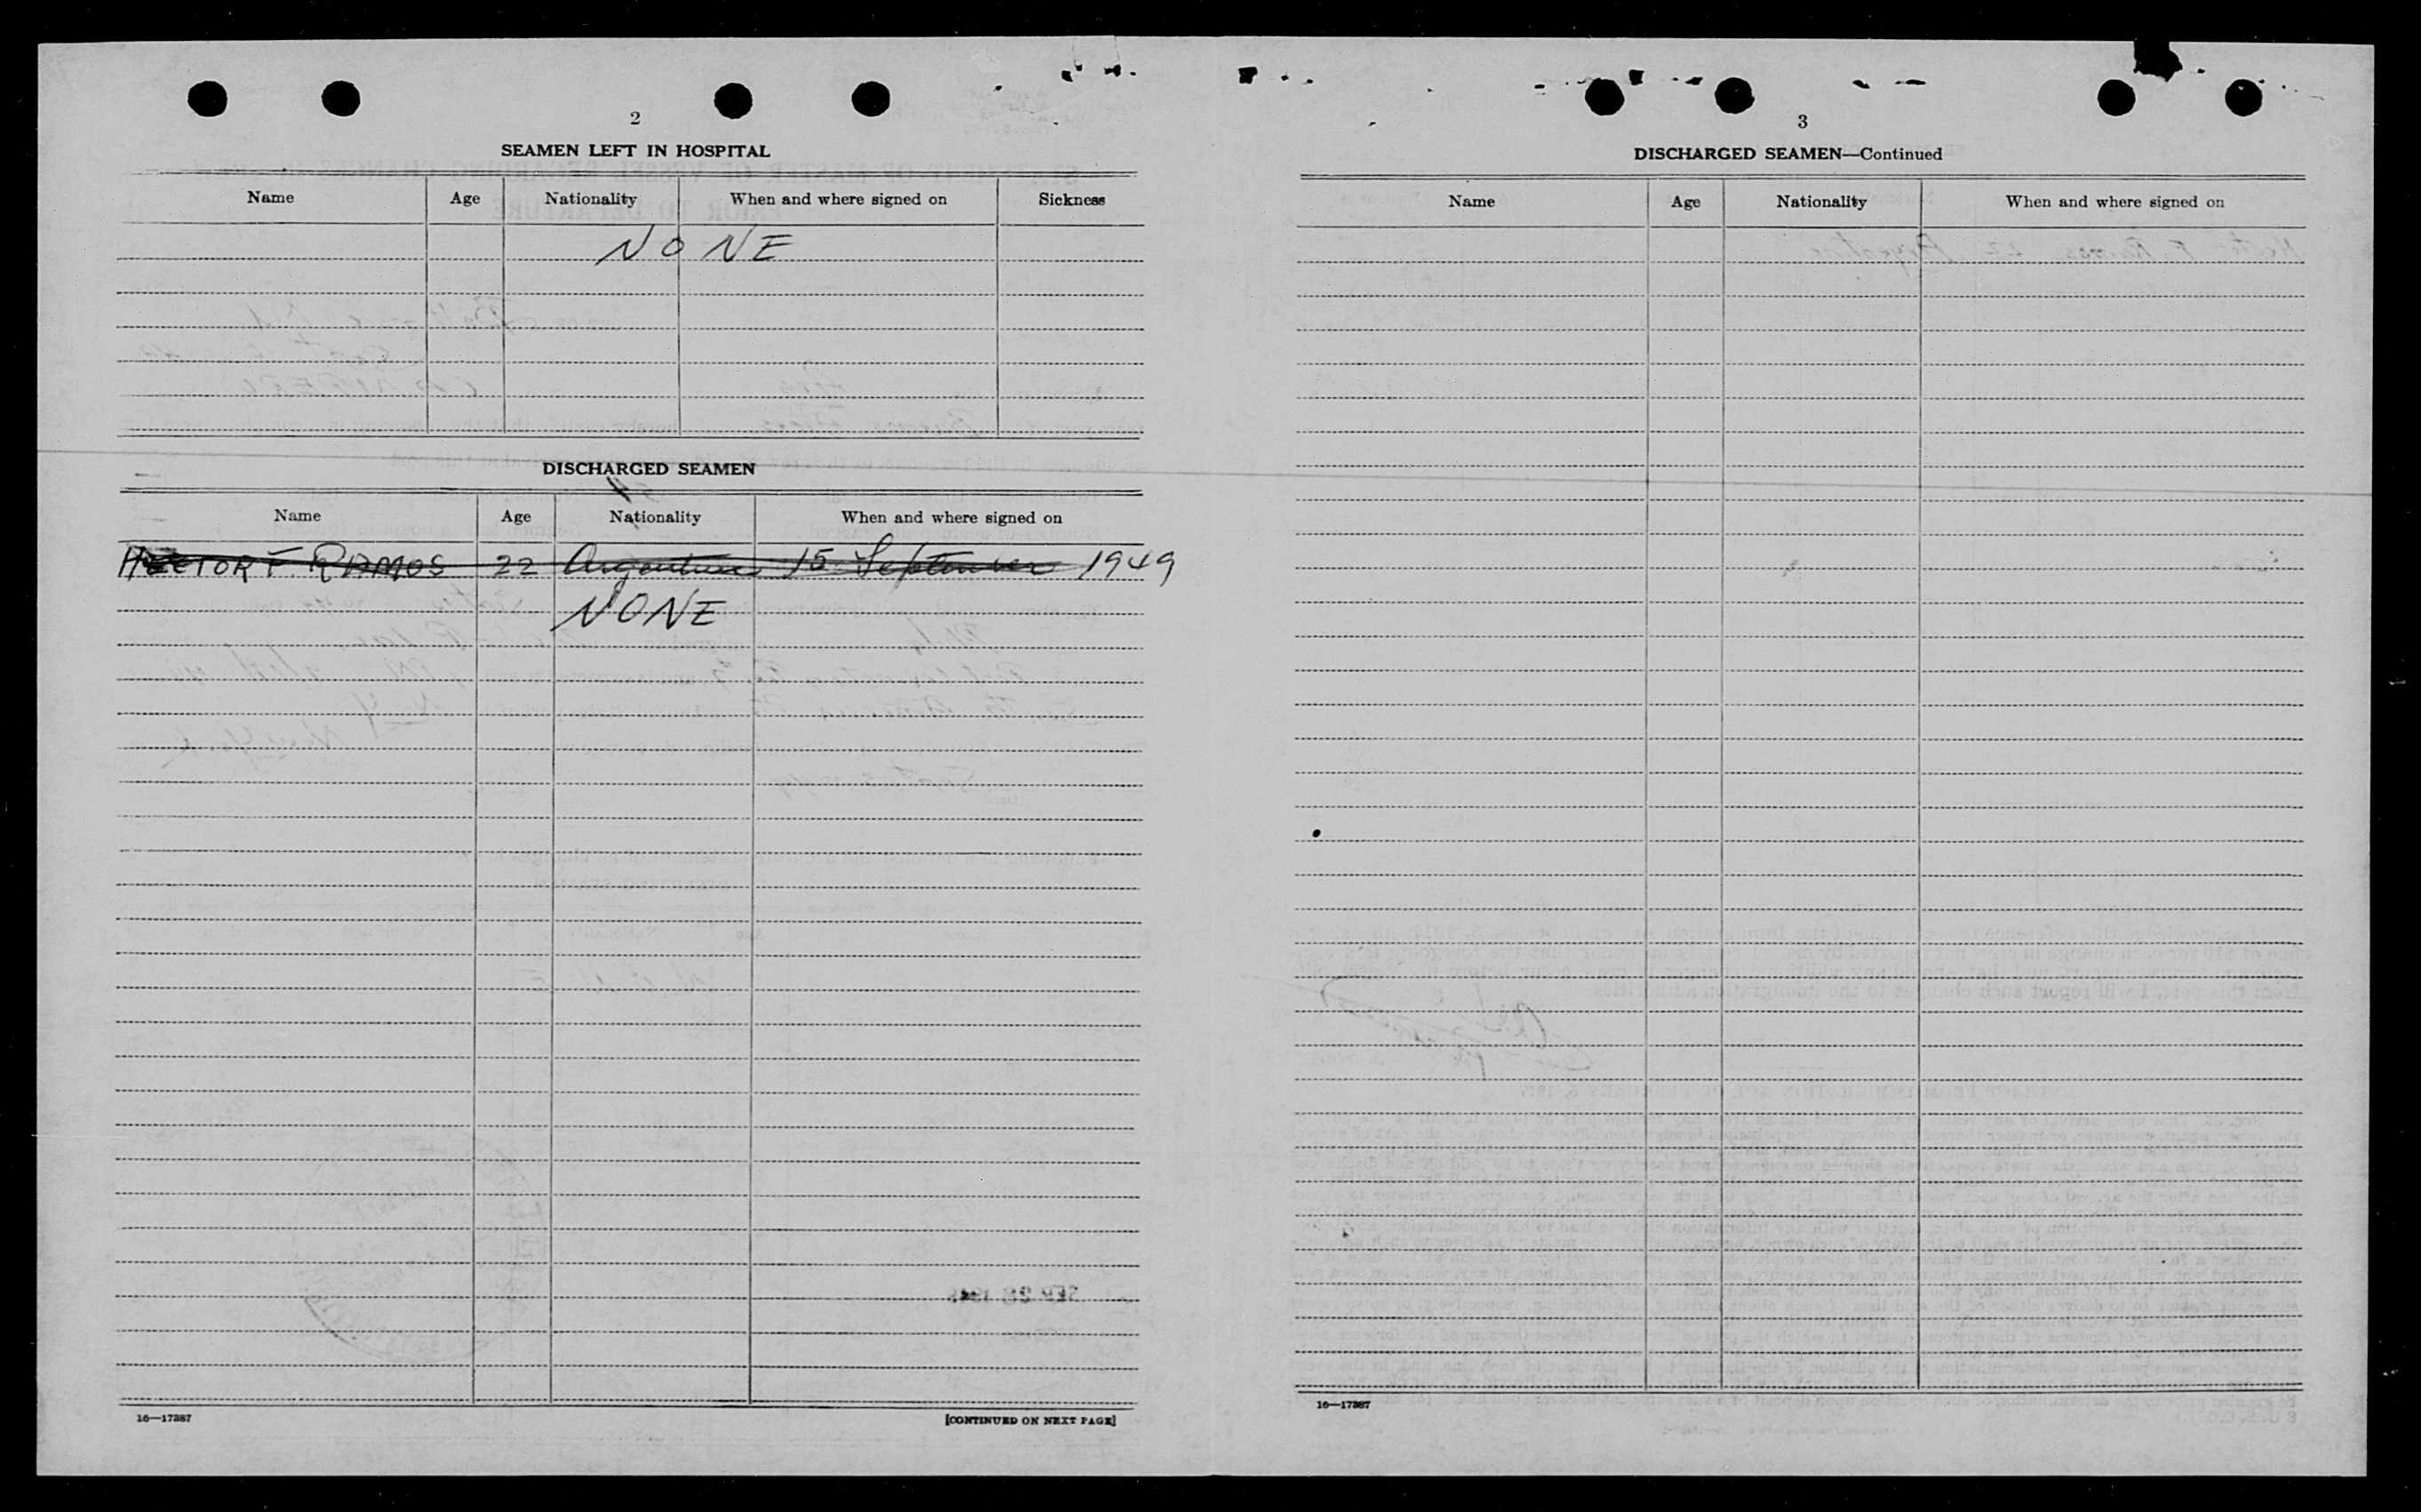 2
SEAMEN LEFT IN HOSPITAL
Name Age Nationality When and where signed on Sickness
NONE
DISCHARGED SEAMEN
Name Age Nationality When and where signed on
HECTOR F. RAMOS 22 Argentine 15 September 1949
NONE
16—17387
[CONTINUED ON NEXT PAGE]
3
DISCHARGED SEAMEN—Continued
Name Age Nationality When and where signed on
16—17387